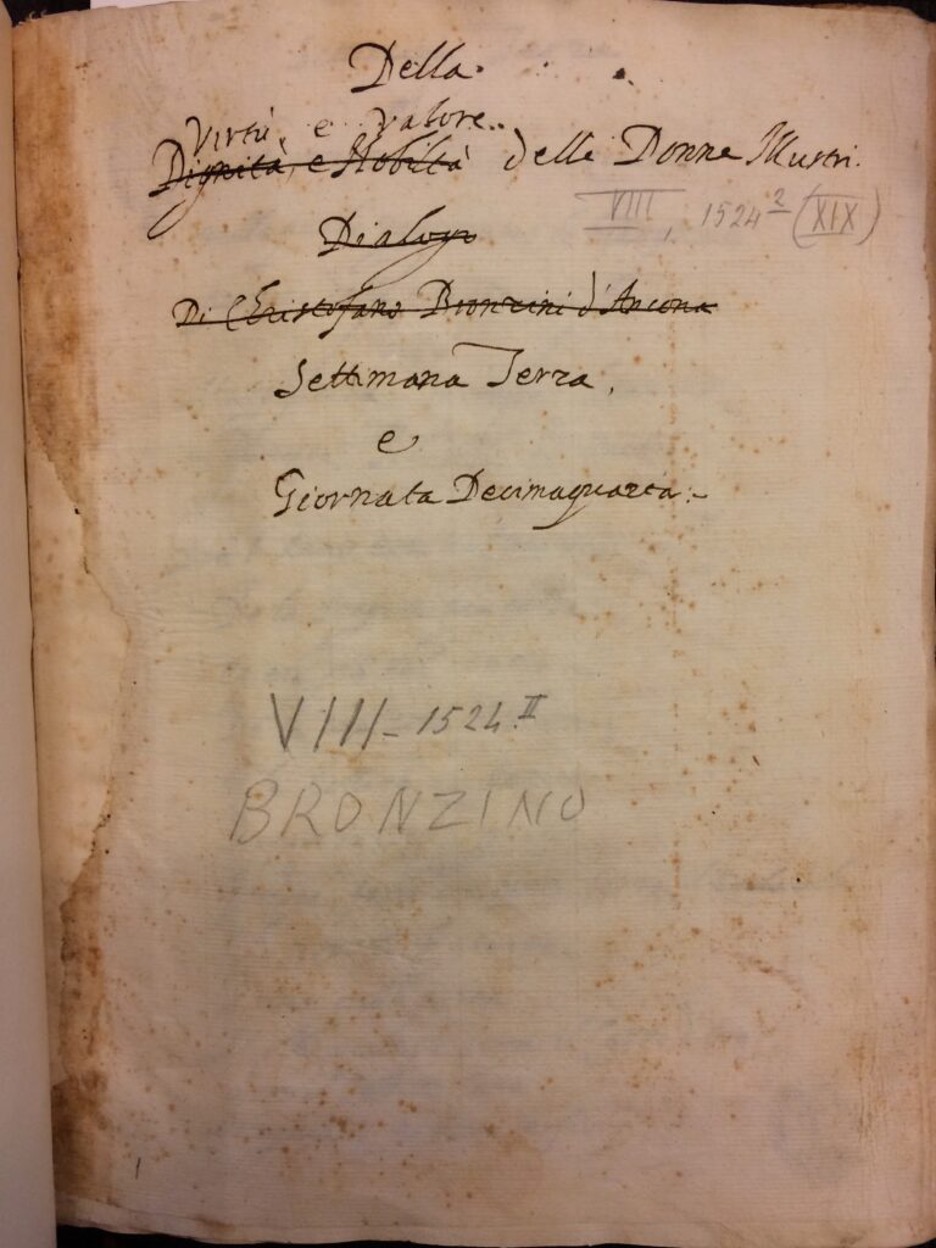 Della
Virtù, e valore
Dignità, e Nobiltà delle Donne Illustri.
VIII, 1524² (XIX)
Dialogo
Di Christofano Bronzini d'Ancona
Settimana Terza,
e
Giornata Decimaquarta:-
VIII- 1524.II
BRONZINO
1